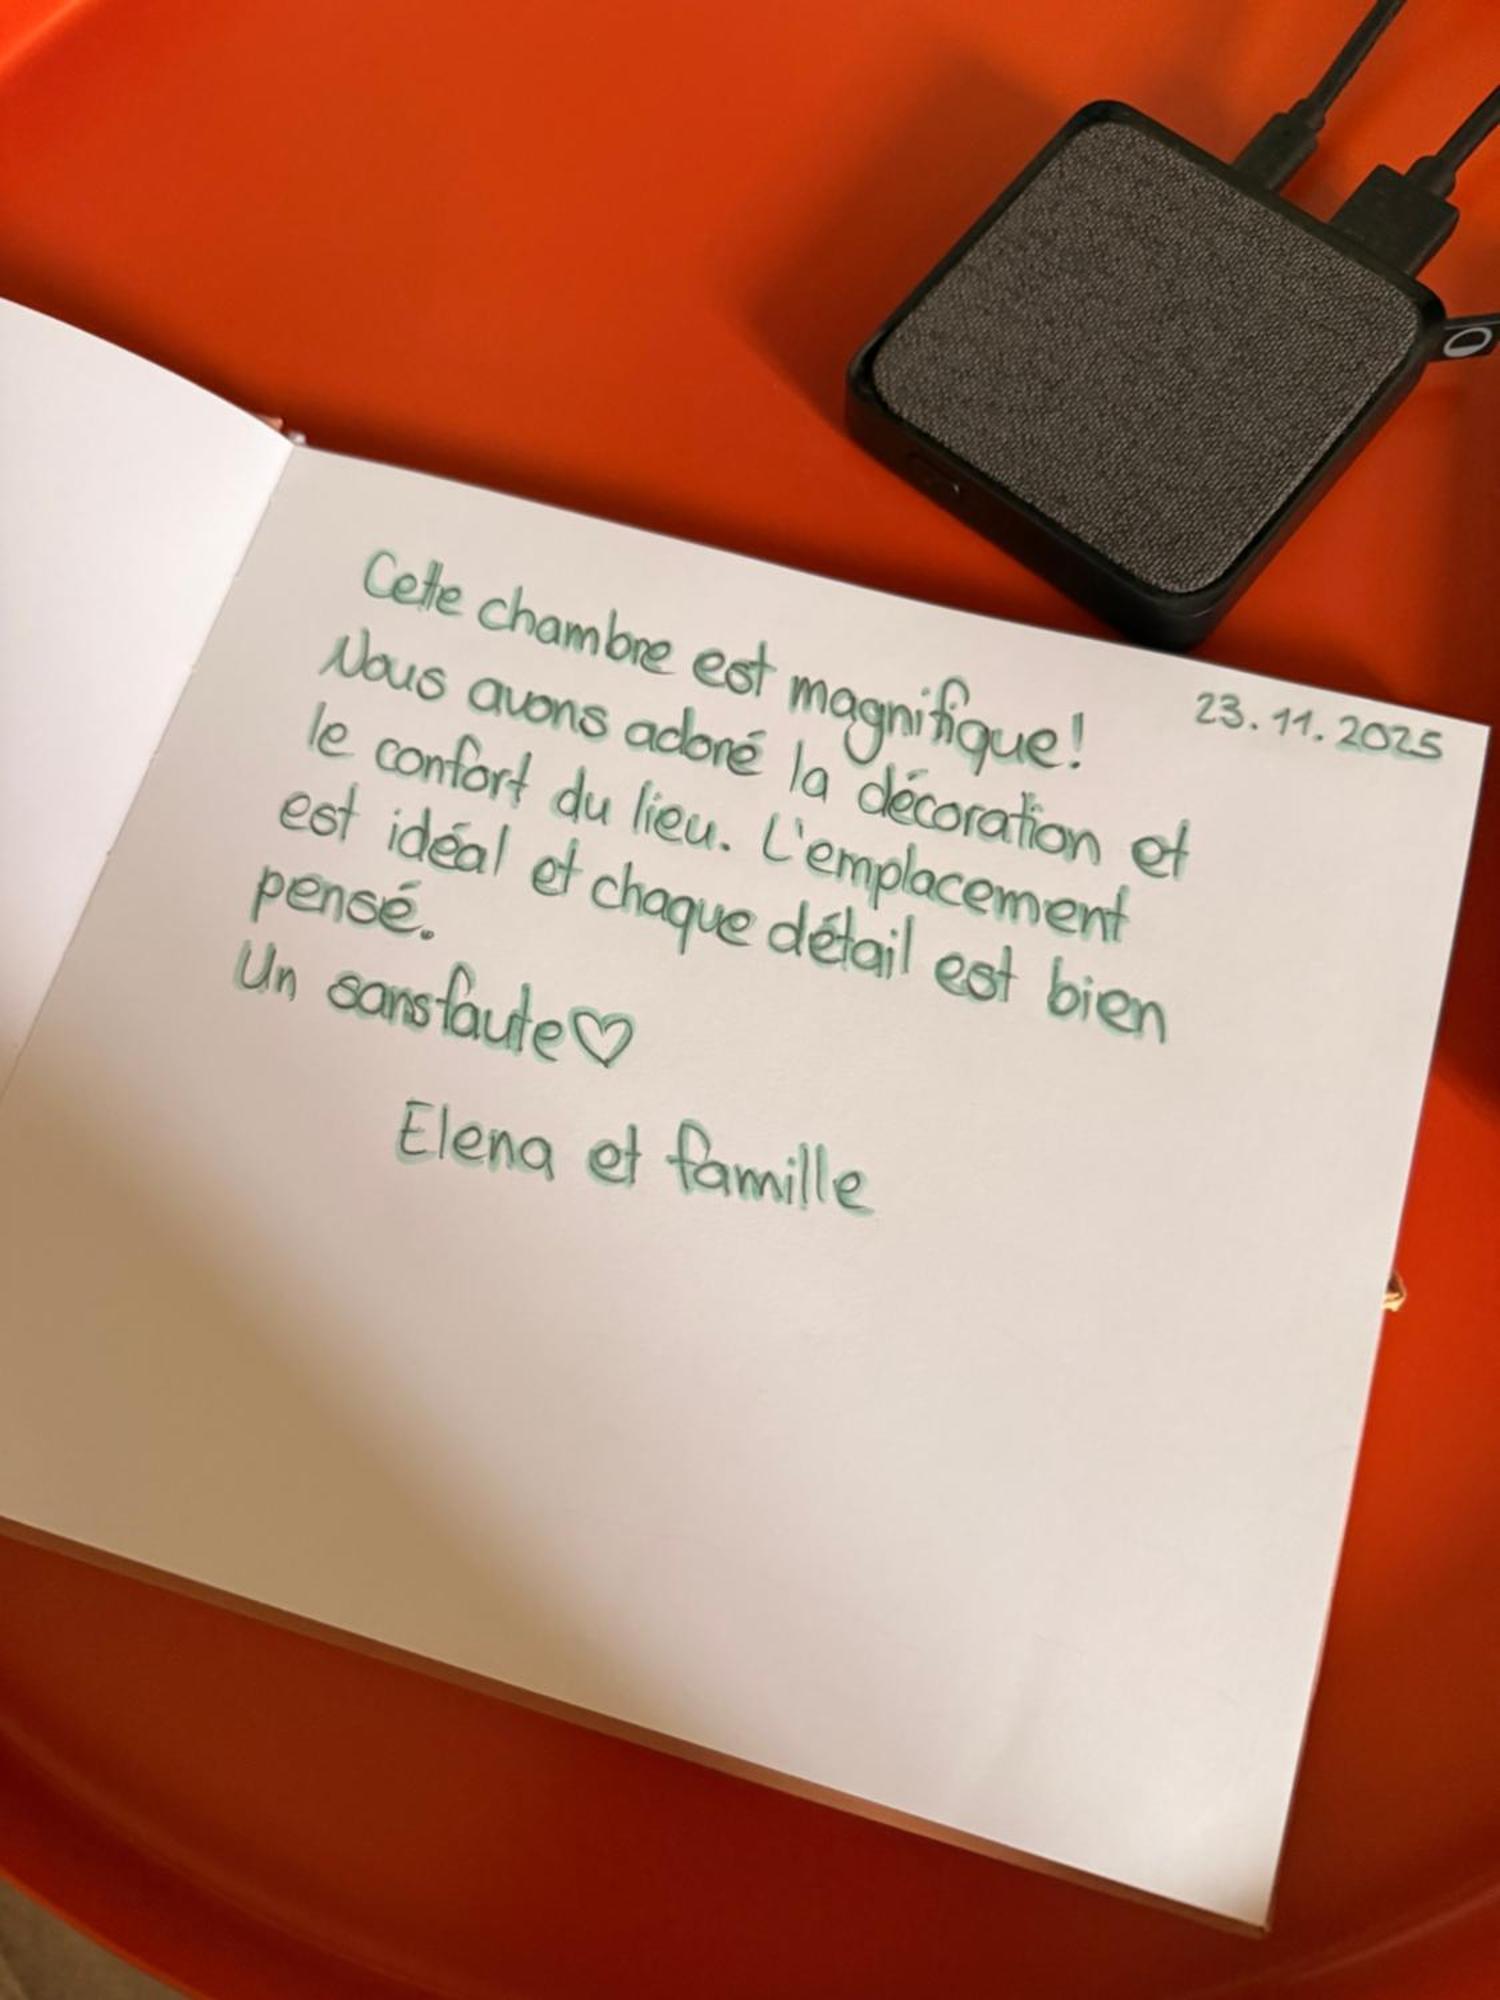 Cette chambre est magnifique!
23.11.2025
Nous avons adoré la décoration et
le confort du lieu. L'emplacement
est idéal et chaque détail est bien
pensé.
Un sans faute♡
Elena et famille